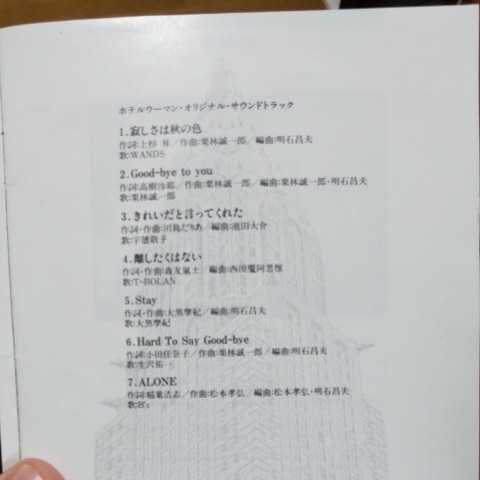 ホテルウーマン・オリジナル・サウンドトラック
1.寂しさは秋の色
作詞:上杉 昇／作曲:栗林誠一郎／編曲:明石昌夫
歌:WANDS
2.Good-bye to you
作詞:高樹沙耶／作曲:栗林誠一郎／編曲:栗林誠一郎・明石昌夫
歌:栗林誠一郎
3.きれいだと言ってくれた
作詞・作曲:川島だりあ／編曲:池田大介
歌:宇徳敬子
4.離したくはない
作詞・作曲:森友嵐士／編曲:西田魔阿思惟
歌:T-BOLAN
5.Stay
作詞・作曲:大黒摩紀／編曲:明石昌夫
歌:大黒摩紀
6.Hard To Say Good-bye
作詞:小田佳奈子／作曲:栗林誠一郎／編曲:明石昌夫
歌:生沢佑一
7.ALONE
作詞:稲葉浩志／作曲:松本孝弘／編曲:松本孝弘・明石昌夫
歌:B'z